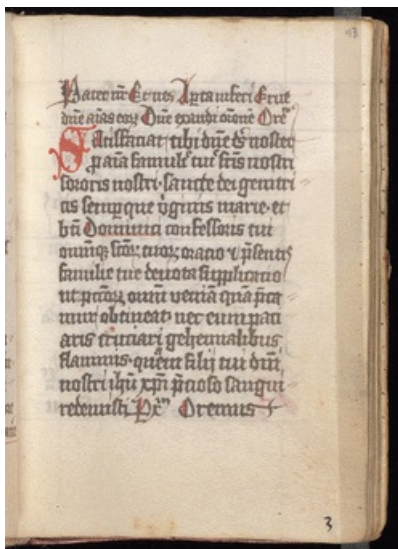 Pater nr̄ Et nes A porta inferi Erue
dn̄e aīas eoꝝ Dn̄e exaudi or̄onē Orem̄
Satisfaciat tibi dn̄e ds̄ noster
p̄ aīa famuli tui fr̄is nostri
sororis nostri · sancte dei genitri
cis semperque v̄ginis marie · et
bt̄i Dominici confessoris tui
omniūq̨ sc̄oꝝ tuoꝝ oratio ⁊ p̄sentis
familie tue deuota supplicatio
ut pc̄toꝝ omniū veniā quā p̄ca
mur obtineat · nec eum paci
aris cruciari gehennalibus
flammis · quem filij tui dn̄i
nostri ih̄u xp̄i p̄cioso sangui
redemisti P̄ x̄m Oremus
3